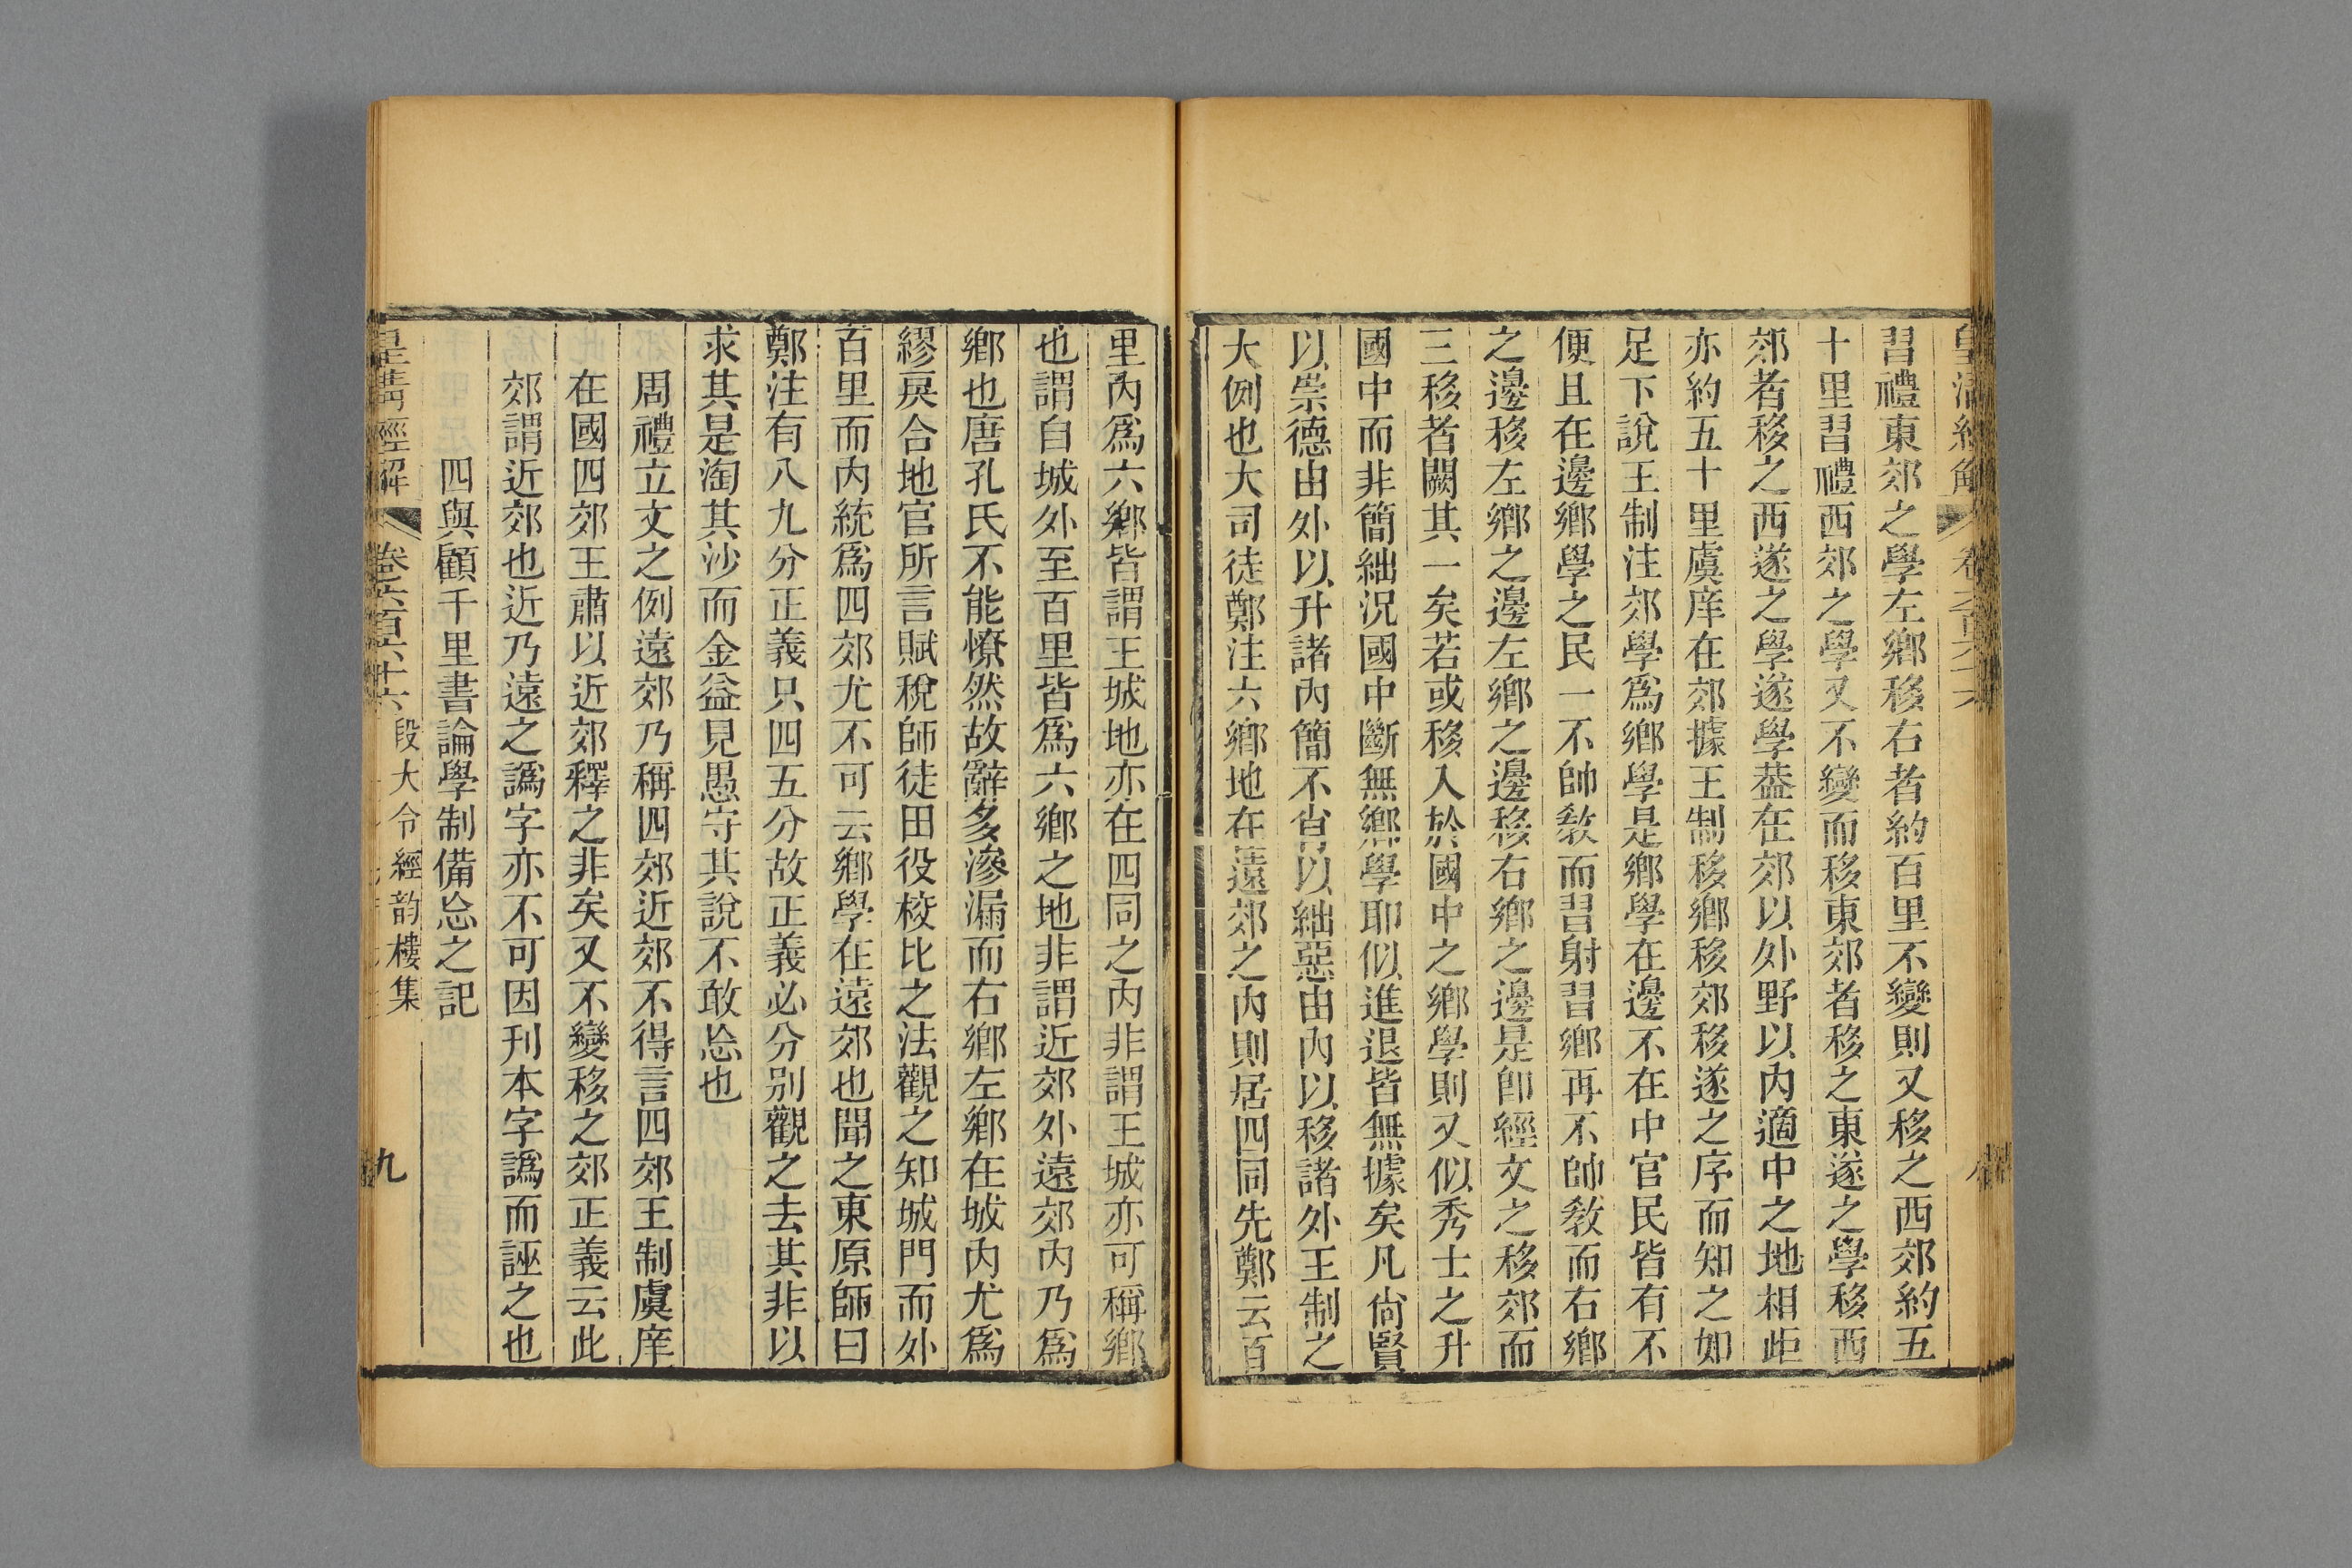 皇清經解 卷六百六十六 八
習禮東郊之學左鄉移右者約百里不變則又移之西郊約五
十里習禮西郊之學又不變而移東郊者移之東遂之學移西
郊者移之西遂之學遂學葢在郊以外野以內適中之地相距
亦約五十里虞庠在郊據王制移鄉移郊移遂之序而知之如
足下說王制注郊學爲鄉學是鄉學在邊不在中官民皆有不
便且在邊鄉學之民一不帥敎而習射習鄉再不帥敎而右鄉
之邊移左鄉之邊左鄉之邊移右鄉之邊是卽經文之移郊而
三移者闕其一矣若或移入於國中之鄉學則又似秀士之升
國中而非簡絀況國中斷無鄉學耶似進退皆無據矣凡尙賢
以崇德由外以升諸內簡不肖以絀惡由內以移諸外王制之
大例也大司徒鄭注六鄉地在遠郊之內則居四同先鄭云百
里內爲六鄉皆謂王城地亦在四同之內非謂王城亦可稱鄉
也謂自城外至百里皆爲六鄉之地非謂近郊外遠郊內乃爲
鄉也唐孔氏不能憭然故辭多滲漏而右鄉左鄉在城內尤爲
繆戾合地官所言賦稅師徒田役校比之法觀之知城門而外
百里而內統爲四郊尤不可云鄉學在遠郊也聞之東原師曰
鄭注有八九分正義只四五分故正義必分別觀之去其非以
求其是淘其沙而金益見愚守其說不敢忩也
周禮立文之例遠郊乃稱四郊近郊不得言四郊王制虞庠
在國四郊王肅以近郊釋之非矣又不變移之郊正義云此
郊謂近郊也近乃遠之譌字亦不可因刊本字譌而誣之也
四與顧千里書論學制備忩之記
皇清經解 卷六百六十六 段大令經韵樓集 九